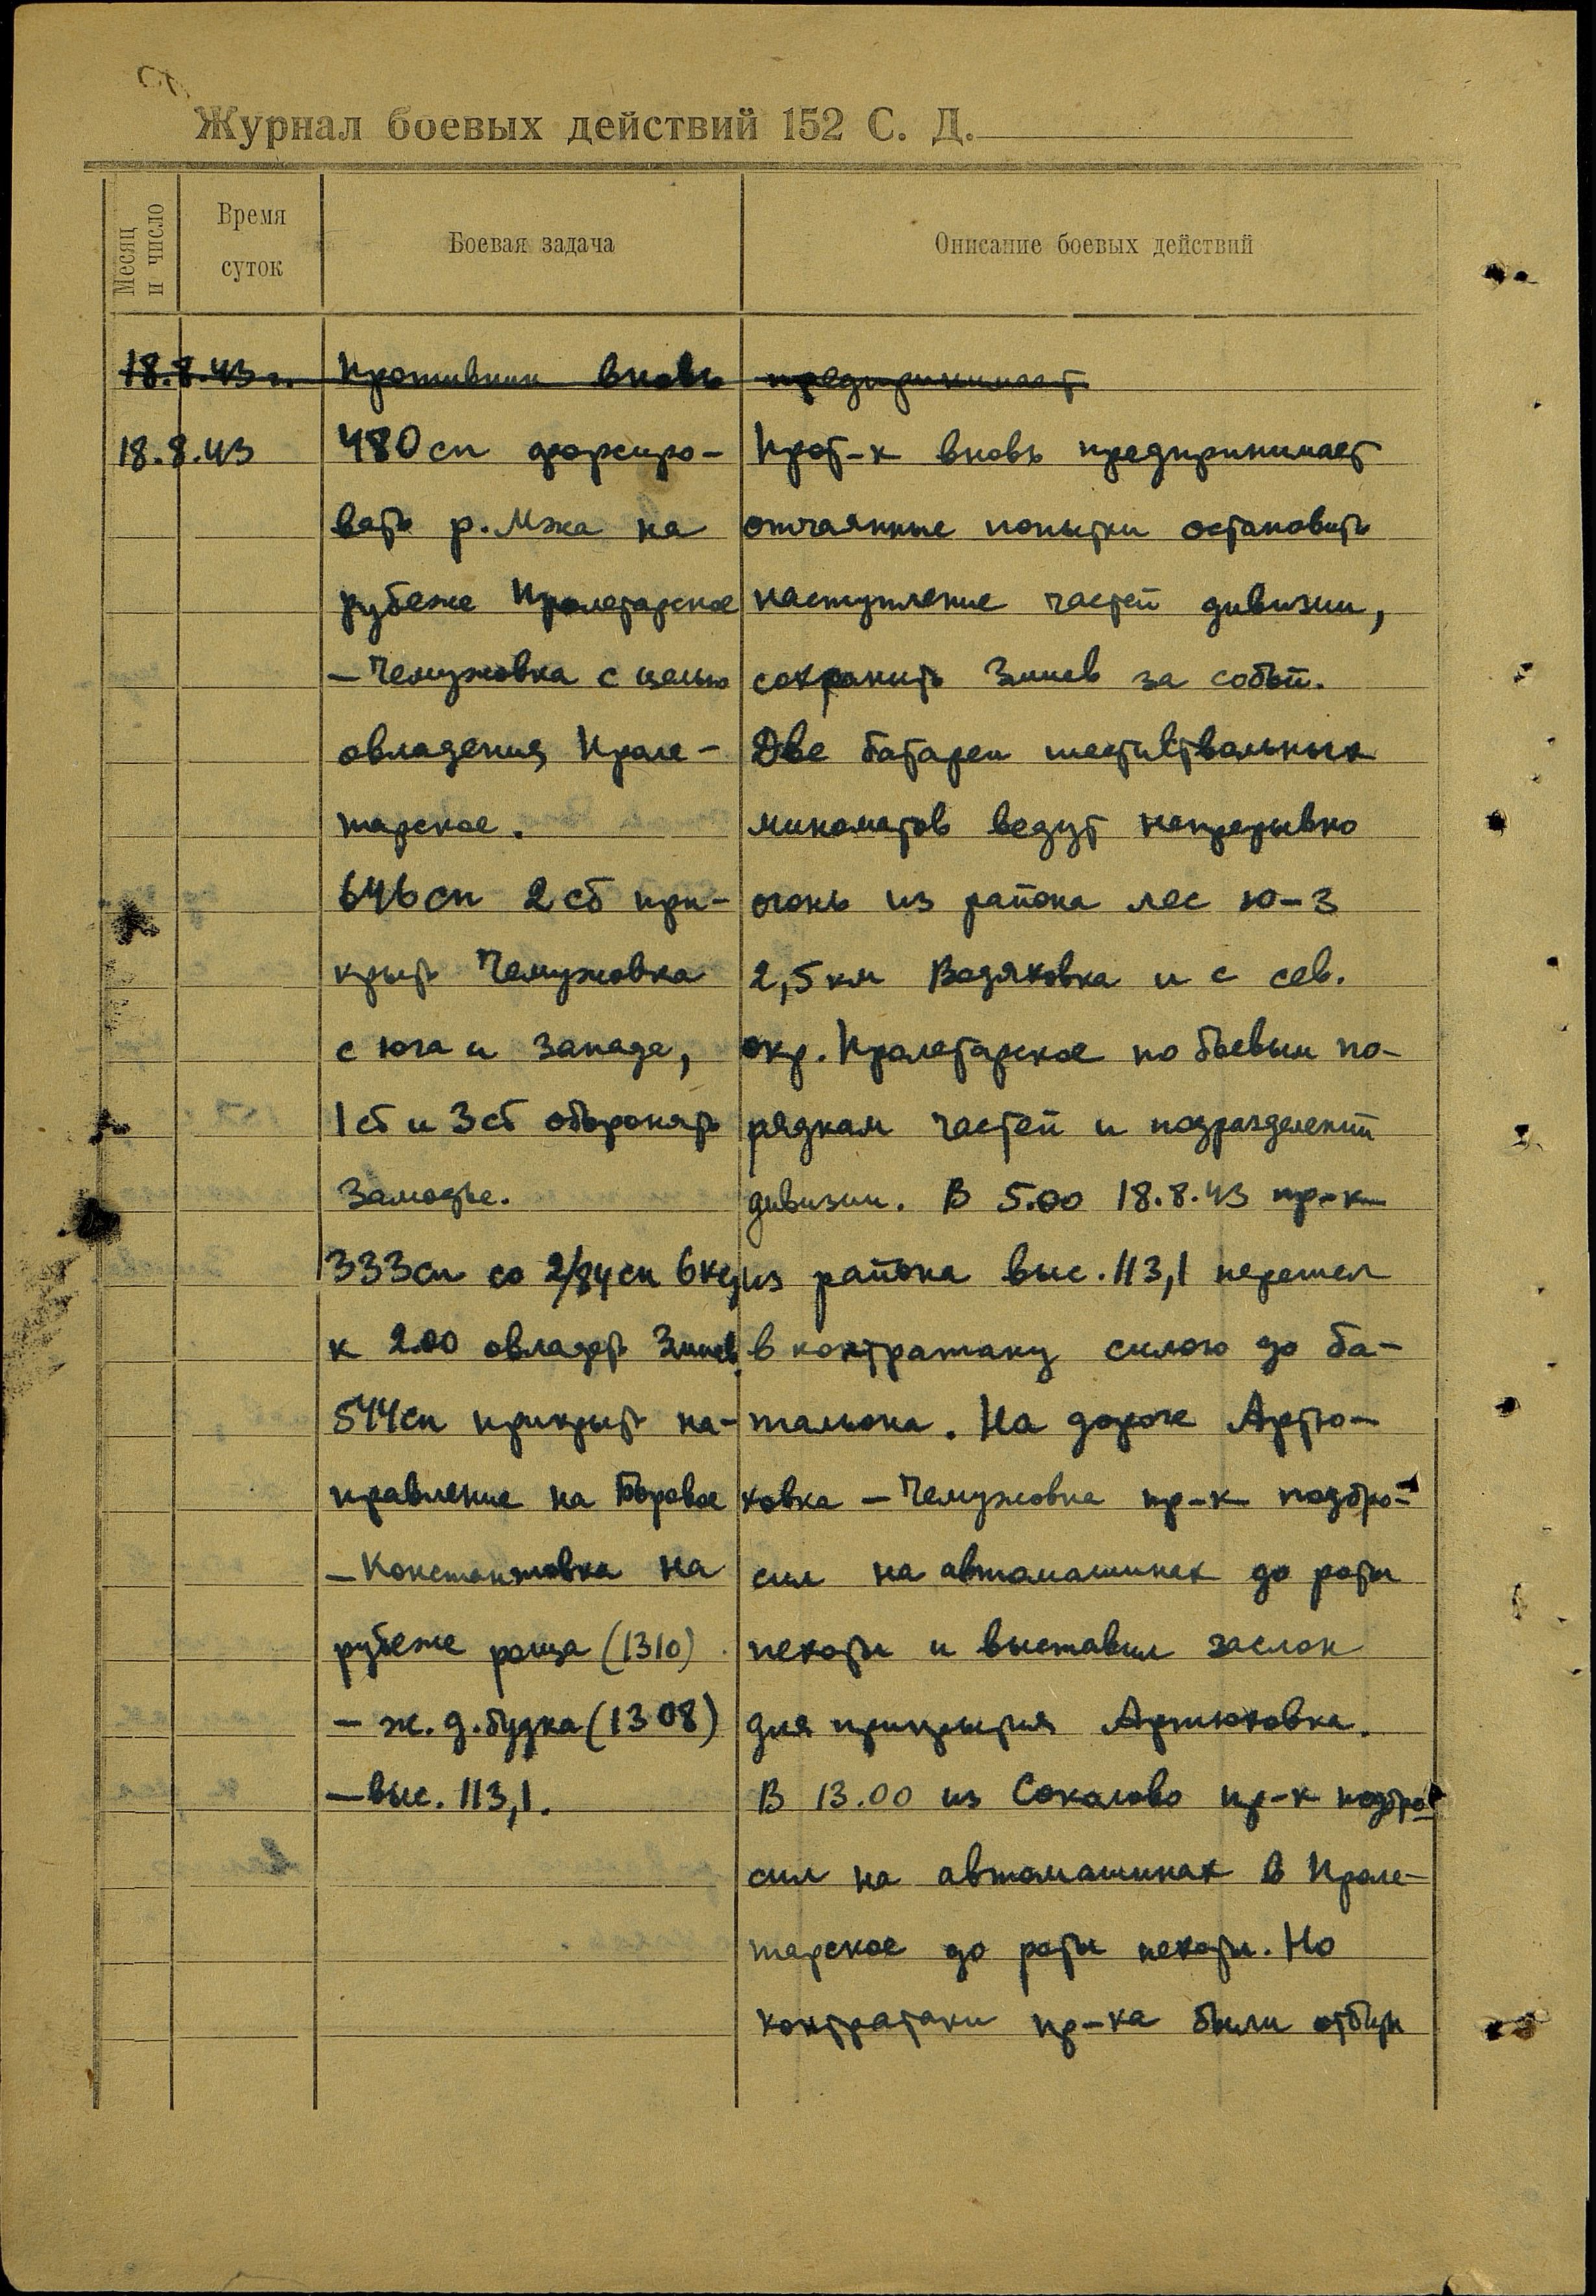 Журнал боевых действий 152 С. Д.
Месяц и число
Время суток
Боевая задача
Описание боевых действий
18.8.43 г. Противник вновь предпринимает
18.8.43
480 сп форсиро-
вать р. Мжа на
рубеже Пролетарское
– Чемужовка с целью
овладения Проле-
тарское.
646 сп 2 сб при-
крыть Чемужовка
с юга и запада,
1 сб и 3 сб оборонять
Замостье.
333 сп со 2/84 сп 6кд
к 2.00 овладеть Змиев.
544 сп прикрыть на-
правление на Боровое
– Константовка на
рубеже роща (1310)
– ж. д. будка (1308)
– выс. 113,1.
Прот-к вновь предпринимает
отчаянные попытки остановить
наступление частей дивизии,
сохранить Змиев за собой.
Две батареи шестиствольных
минометов ведут непрерывно
огонь из района лес ю-з
2,5 км Водяховка и с сев.
окр. Пролетарское по боевым по-
рядкам частей и подразделений
дивизии. В 5.00 18.8.43 пр-к
из района выс. 113,1 перешел
в контратаку силою до ба-
тальона. На дороге Артю-
ховка – Чемужовка пр-к подбро-
сил на автомашинах до роты
пехоты и выставил заслон
для прикрытия Артюховка.
В 13.00 из Соколово пр-к подбро-
сил на автомашинах в Проле-
тарское до роты пехоты. Но
контратаки пр-ка были отбиты